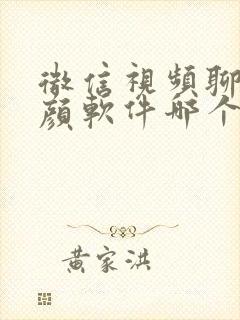 微信視頻聊
顔軟件哪个
黄家洪